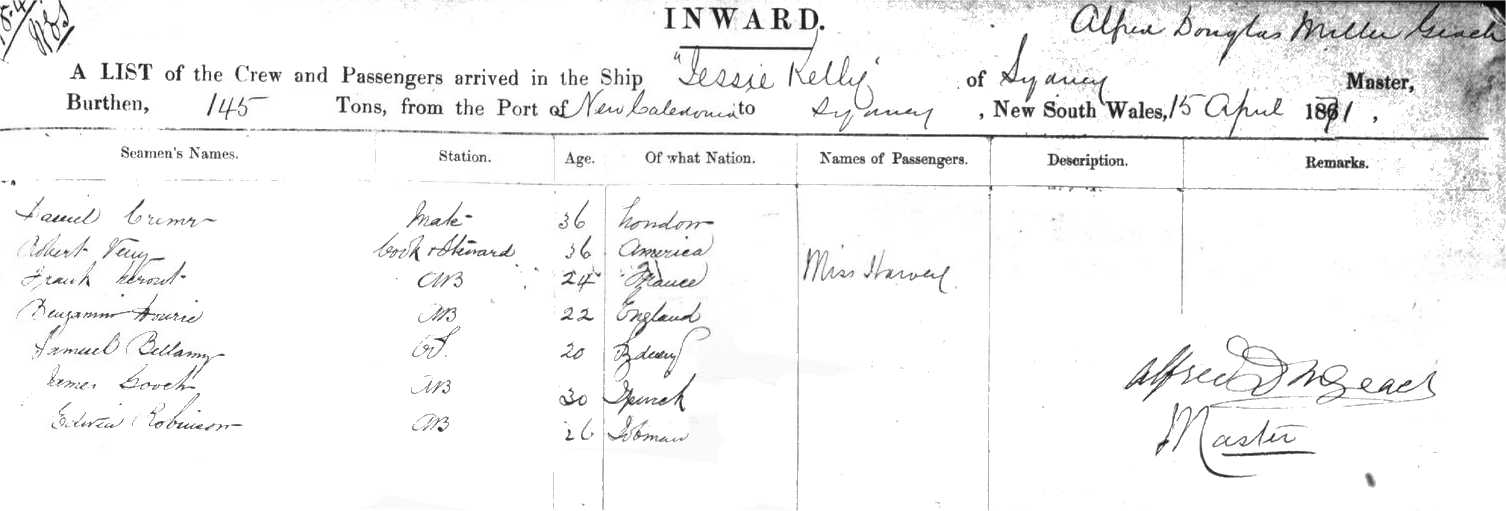 INWARD.
Alfred Douglas Miller Geach
A LIST of the Crew and Passengers arrived in the Ship "Jessie Kelly" of Sydney Master,
Burthen, 145 Tons, from the Port of New Caledonia to Sydney, New South Wales, 15 April 1871,
Seamen's Names. Station. Age. Of what Nation. Names of Passengers. Description. Remarks.
Mate 36 London
Robert Cook & Steward 36 America
Frank AB 24 France Miss Harvey
Benjamin Hourie AB 22 England
Samuel Bellamy OS. 20 Sydney
James Gooch AB 30 Ipswich
Edwin Robinson AB 26
Alfred D M Geach
Master